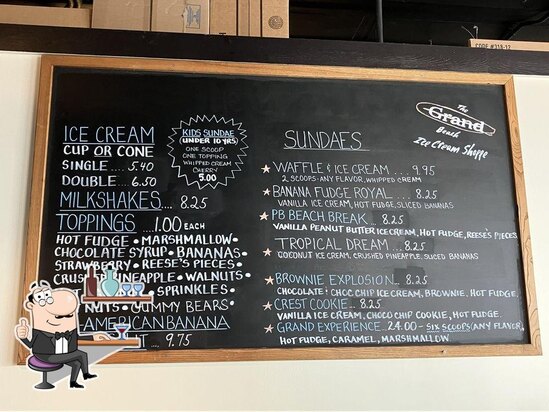 CODE #318-12
The
Grand
Beach
Ice Cream Shoppe
ICE CREAM
CUP OR CONE
SINGLE .... 5.40
DOUBLE ... 6.50
MILKSHAKES.... 8.25
TOPPINGS ....1.00 EACH
HOT FUDGE • MARSHMALLOW •
CHOCOLATE SYRUP • BANANAS •
STRAWBERRY & REESE'S PIECES •
CRUSH PINEAPPLE • WALNUTS •
SPRINKLES •
NUTS • GUMMY BEARS •
AMERICAN BANANA
T 9.75
KIDS SUNDAE
(UNDER 10 YRS)
ONE SCOOP
ONE TOPPING
WHIPPED CREAM
CHERRY
5.00
SUNDAES
WAFFLE & ICE CREAM .... 9.95
2 SCOOPS - ANY FLAVOR, WHIPPED CREAM
BANANA FUDGE ROYAL ... 8.25
VANILLA ICE CREAM, HOT FUDGE, SLICED BANANAS
PB BEACH BREAK ... 8.25
VANILLA PEANUT BUTTER ICE CREAM, HOT FUDGE, REESE'S PIECES
TROPICAL DREAM .... 8.25
COCONUT ICE CREAM, CRUSHED PINEAPPLE, SLICED BANANAS
BROWNIE EXPLOSION... 8.25
CHOCOLATE & CHOC CHIP ICE CREAM, BROWNIE, HOT FUDGE
CREST COOKIE... 8.25
VANILLA ICE CREAM, CHOCO CHIP COOKIE, HOT FUDGE
GRAND EXPERIENCE. 24.00 - SIX SCOOPS (ANY FLAVOR),
HOT FUDGE, CARAMEL, MARSHMALLOW